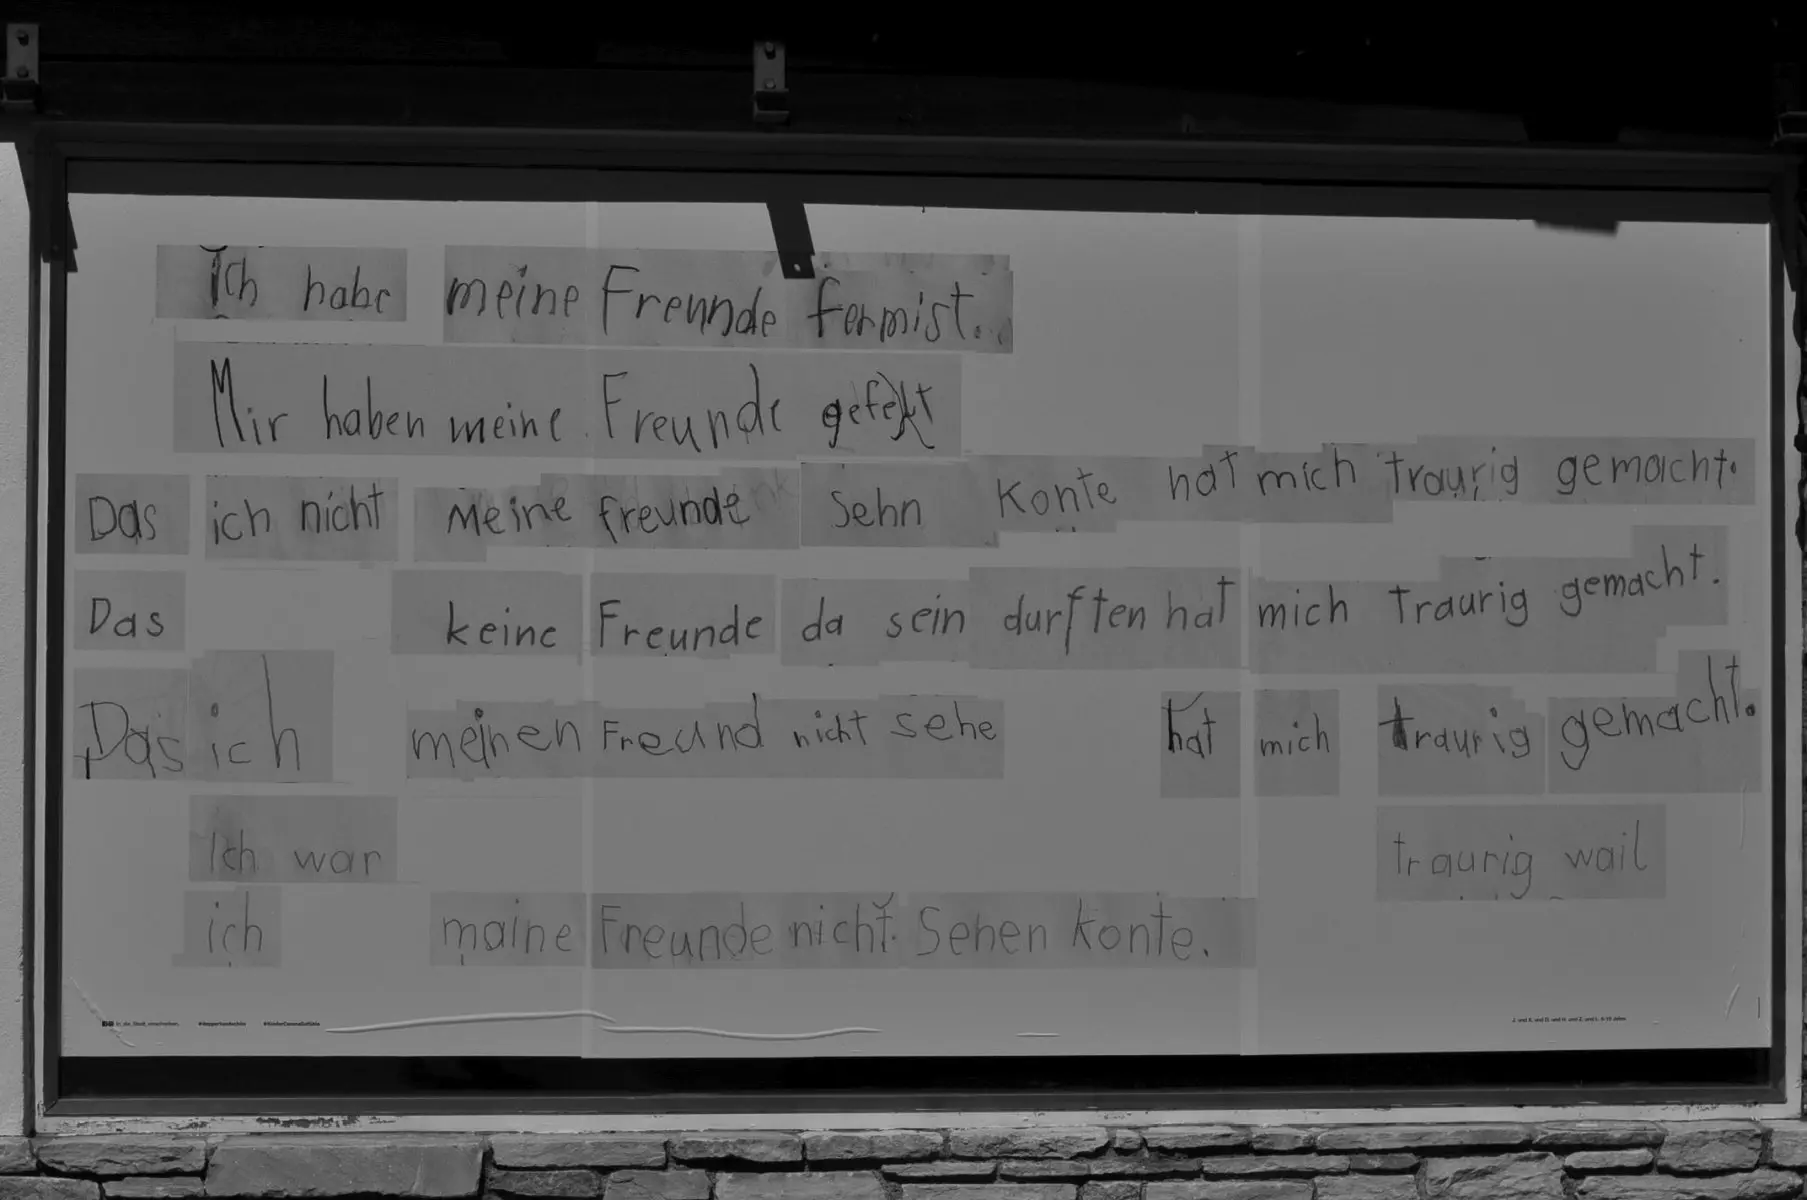 Ich habe meine Freunde fermist.
Mir haben meine Freunde gefehlt
Das ich nicht Meine freunde Sehn Konte hat mich traurig gemacht.
Das keine Freunde da sein durften hat mich traurig gemacht.
Das ich meinen Freund nicht sehe hat mich traurig gemacht.
Ich war traurig wail
ich maine Freunde nicht Sehen konte.
in_die_Stadt_einschreiben. #KinderCoronaGefühle